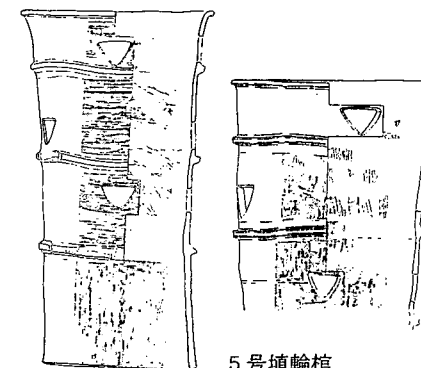 5号埴輪棺